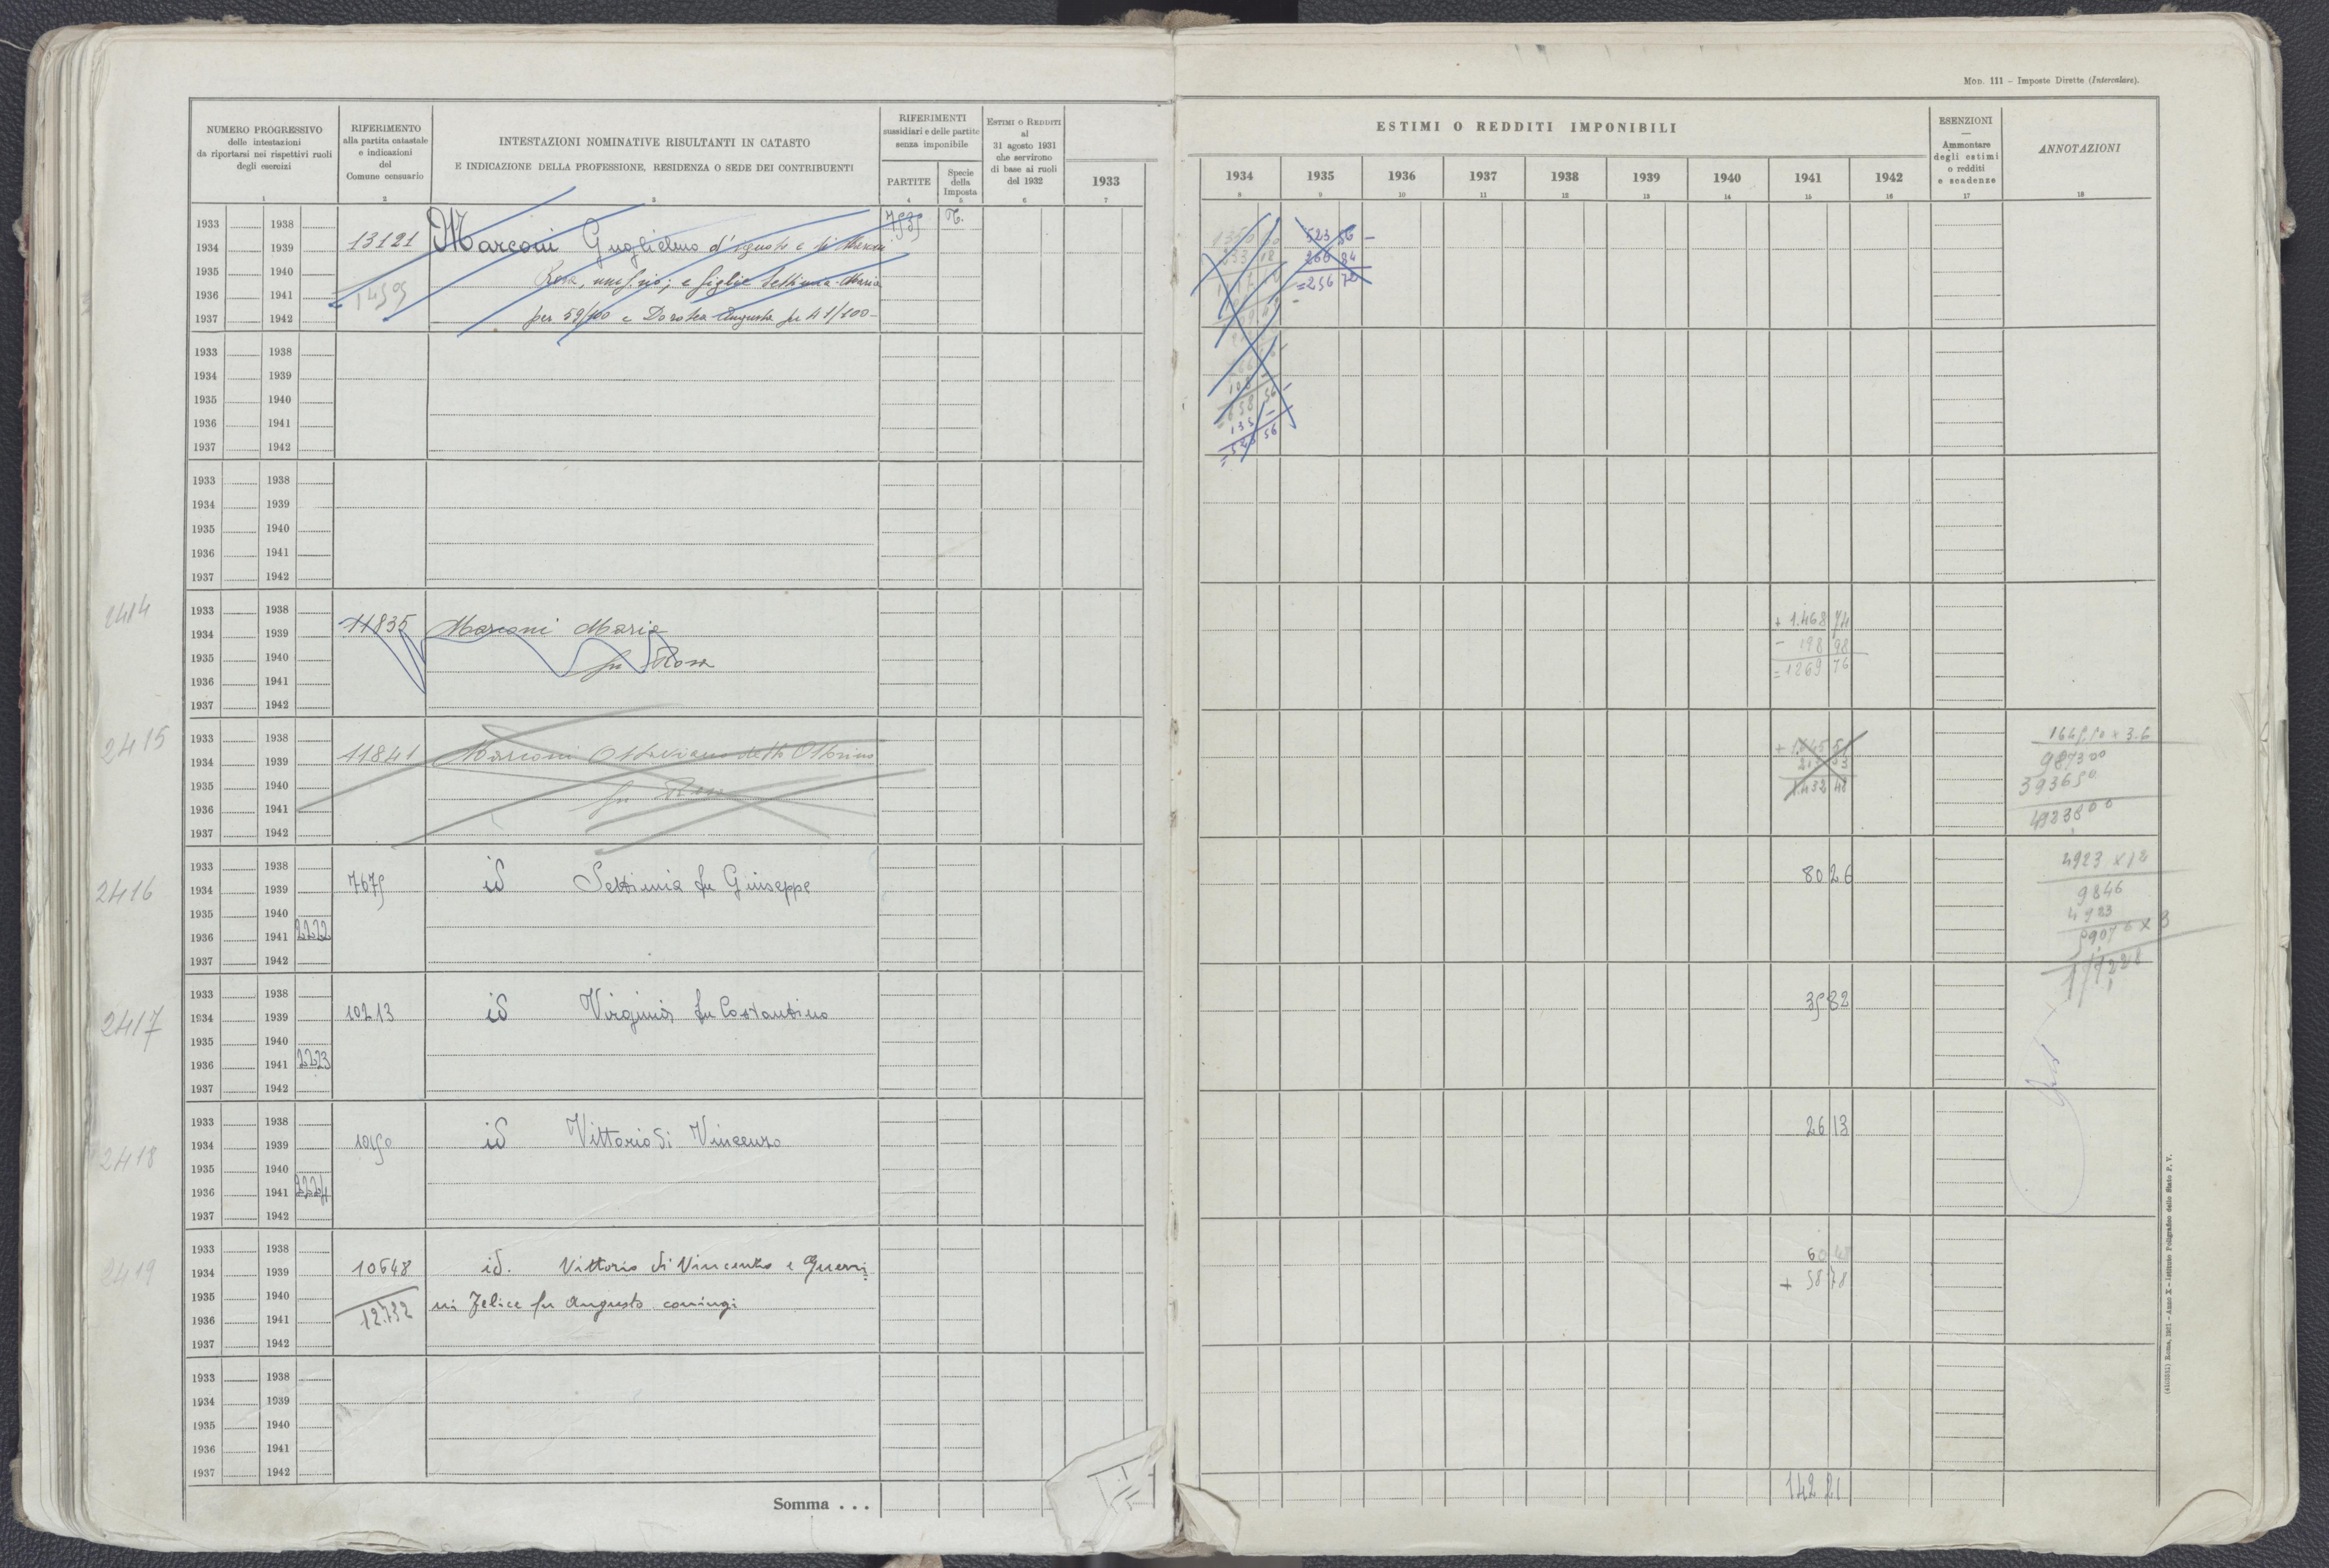 Mod. 111 - Imposte Dirette (Intercalare).
NUMERO PROGRESSIVO
delle intestazioni
da riportarsi nei rispettivi ruoli
degli esercizi
RIFERIMENTO
alla partita catastale
e indicazioni
del
Comune censuario
INTESTAZIONI NOMINATIVE RISULTANTI IN CATASTO
E INDICAZIONE DELLA PROFESSIONE, RESIDENZA O SEDE DEI CONTRIBUENTI
RIFERIMENTI
sussidiari e delle partite
senza imponibile
PARTITE
Specie
della
Imposta
ESTIMI O REDDITI
al
31 agosto 1931
che servirono
di base ai ruoli
del 1932
ESTIMI O REDDITI IMPONIBILI
1933 1934 1935 1936 1937 1938 1939 1940 1941 1942
ESENZIONI
Ammontare
degli estimi
o redditi
e scadenze
ANNOTAZIONI
1 2 3 4 5 6 7 8 9 10 11 12 13 14 15 16 17 18
1933 1938
1934 1939 13121 Marconi Guglielmo
1935 1940 Rosa, e figlie Settimia Maria
1936 1941
1937 1942 per 59/100 e Dorotea Augusta per 41/100
523 56
266 84
=256 72
1933 1938
1934 1939
1935 1940
1936 1941
1937 1942
1933 1938
1934 1939
1935 1940
1936 1941
1937 1942
2414
1933 1938 + 1.468 74
1934 1939 11835 Marconi Maria - 198 98
1935 1940 fu Rosa = 1269 76
1936 1941
1937 1942
2415
1933 1938
1934 1939 11841 Marconi Ottaviano detto Ottorino
1935 1940 fu Rosa
1936 1941 1.432 48
1937 1942
987300
393650
2416
1933 1938 4923 x 12
1934 1939 7675 id Settimia fu Giuseppe 80 26
1935 1940 9846
1936 1941 2222 4923
1937 1942
2417
1933 1938
1934 1939 10213 id Virginia fu Costantino 35 82
1935 1940
1936 1941 2223
1937 1942
2418
1933 1938
1934 1939 id Vittorio di Vincenzo 26 13
1935 1940
1936 1941 2224
1937 1942
2419
1933 1938
1934 1939 10648 id. Vittorio di Vincenzo e Guerri
1935 1940 ni Felice fu Augusto coniugi + 58 78
1936 1941 12732
1937 1942
1933 1938
1934 1939
1935 1940
1936 1941
1937 1942
Somma . . . 142 21